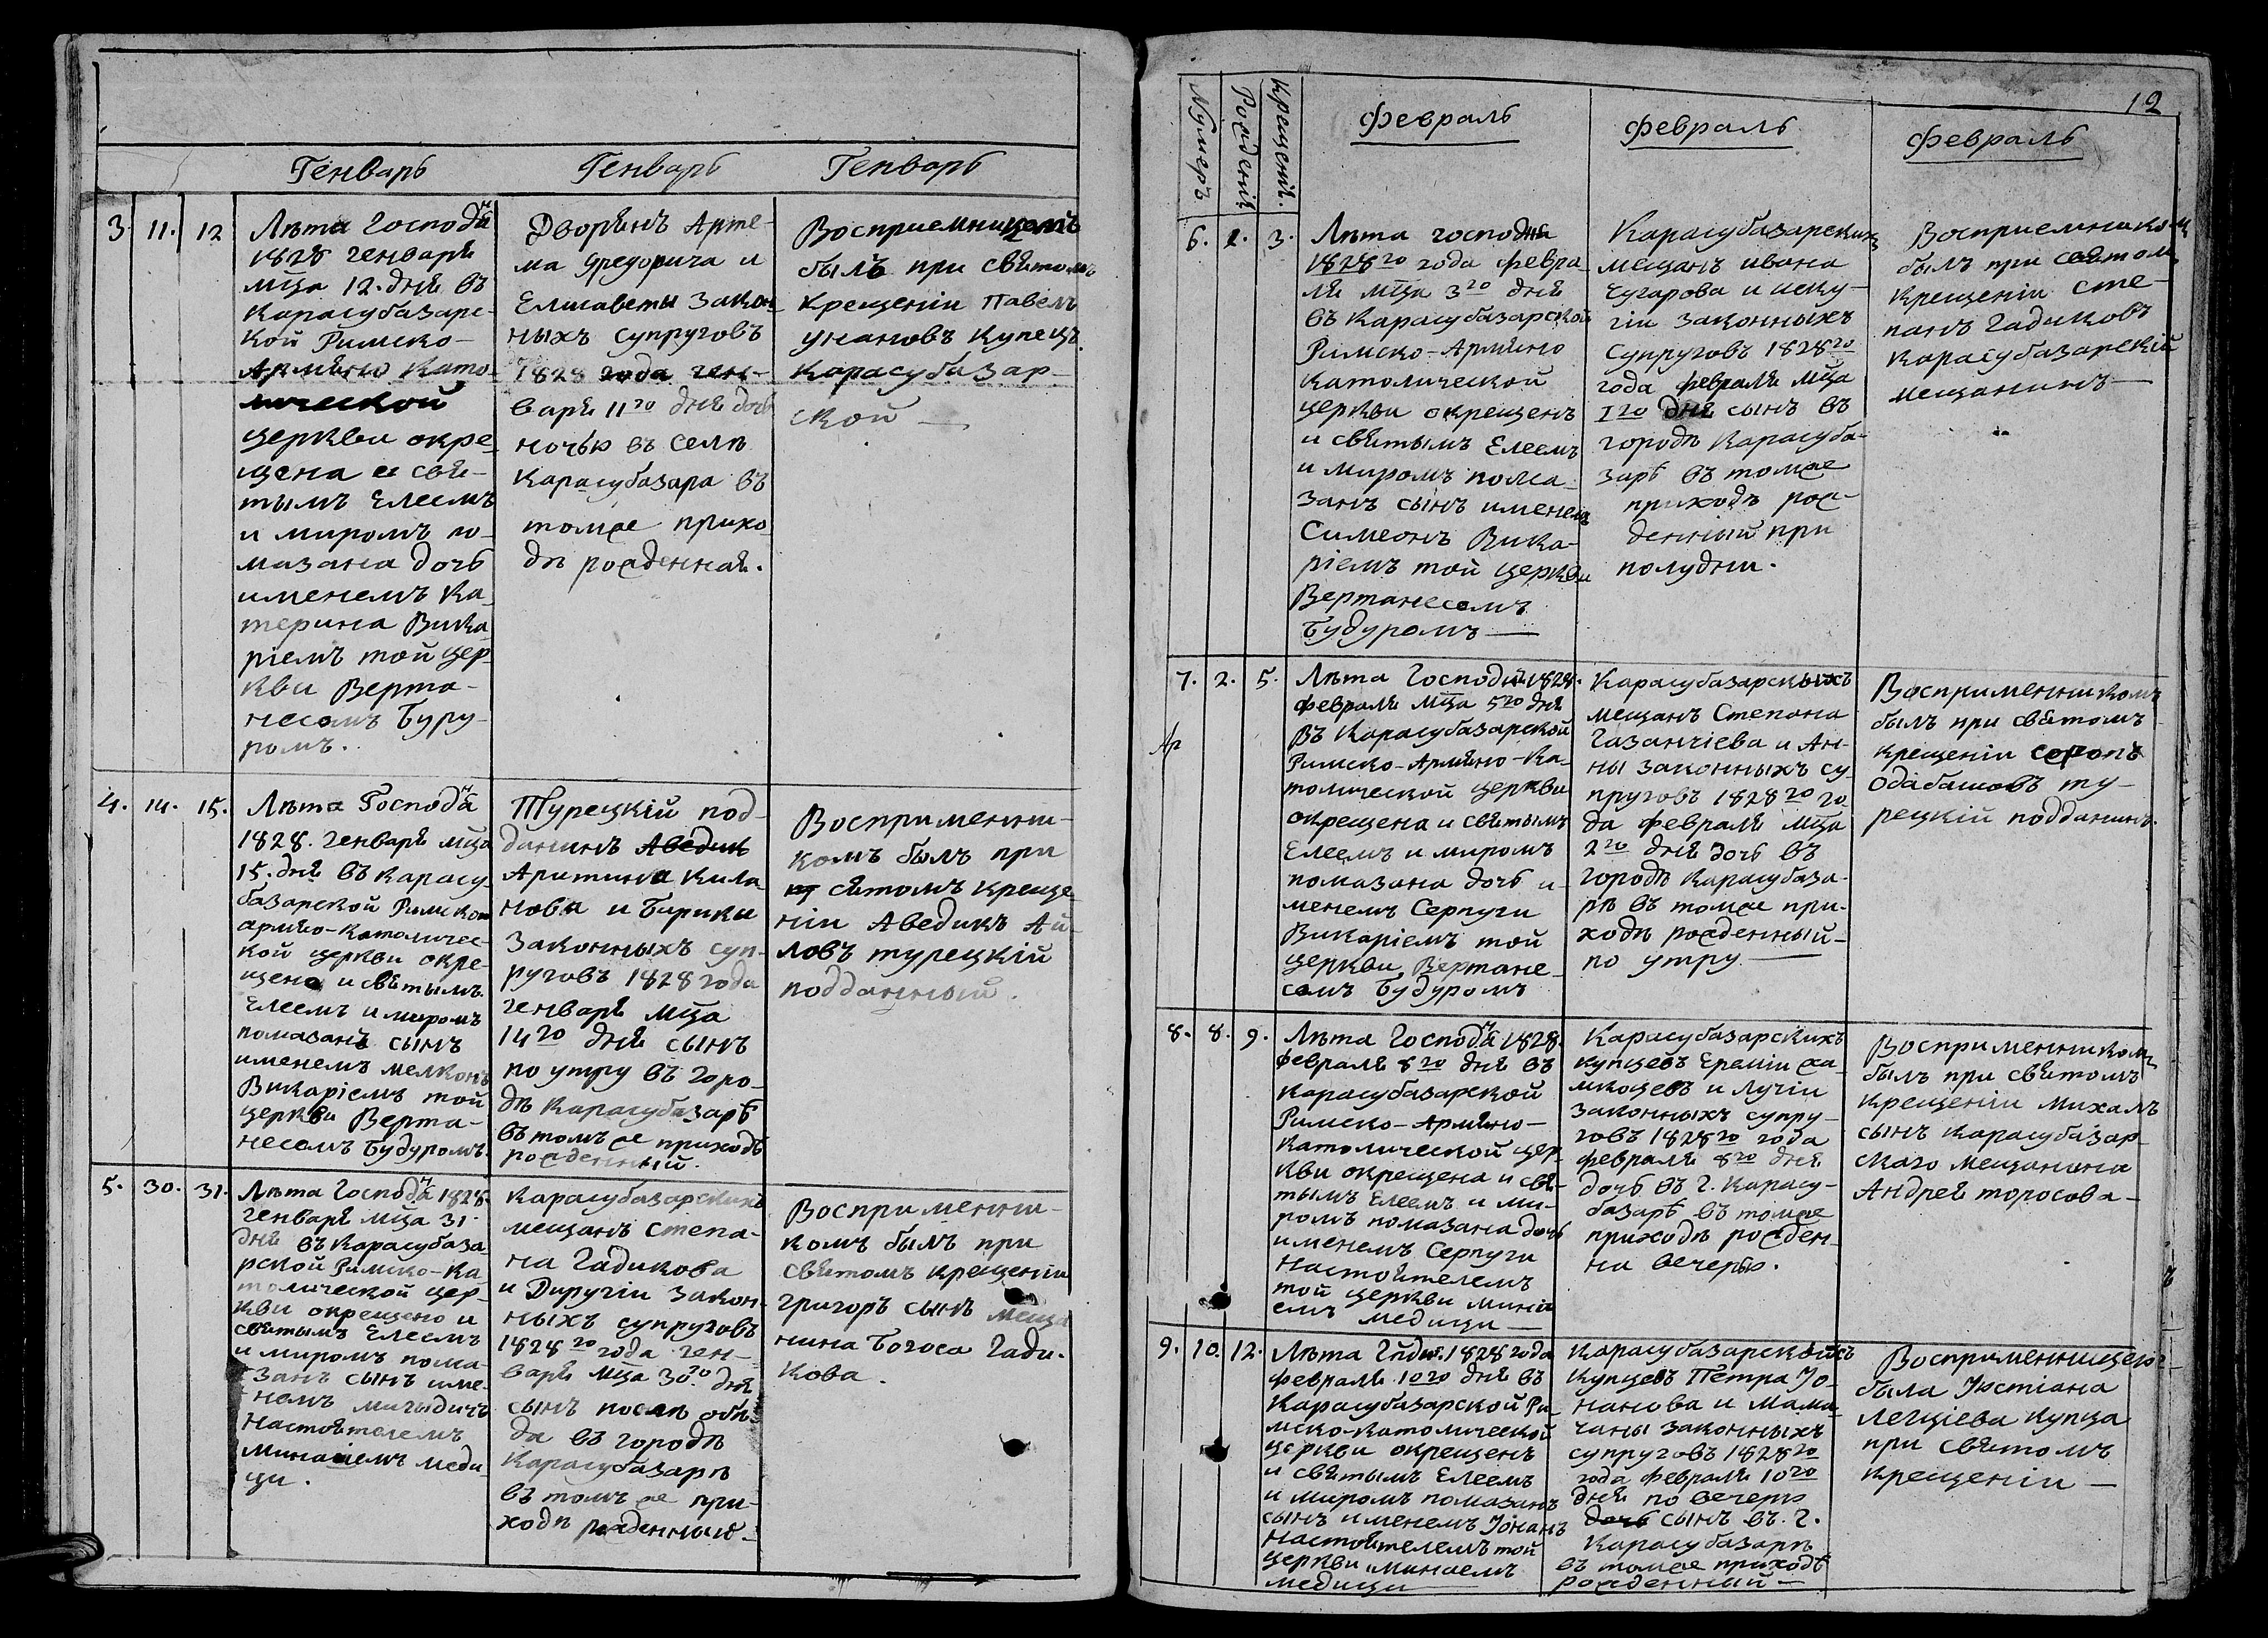 Генварь
Генварь
Генварь
3. 11. 12
Лѣта Господня
1828 генваря
мца 12. дня въ
Карасубазарс-
кой Римско-
Армяно Като-
лической
церкви окре-
щена и свя-
тымъ Елеемъ
и миромъ по-
мазана дочь
именемъ Ка-
терина Вика-
ріемъ той цер-
кви Верта-
несомъ Буду-
ромъ.
Дворянъ Арте-
ма Фредорича и
Елисаветы закон-
ныхъ супруговъ
1828 года ген-
варя 11го дня дочь
ночью въ селѣ
Карасубазара въ
томже прихо-
дѣ рожденная.
Восприемницемъ
былъ при святомъ
крещеніи Павелъ
унановъ Купецъ
Карасубазар-
ской —
4. 14. 15.
Лѣта Господня
1828. генваря мца
15. дня въ Карасу-
базарской Римско
армяно-католичес-
кой церкви окре-
щена и святымъ
Елеемъ и миромъ
помазанъ сынъ
именемъ мелконъ
Викаріемъ той
церкви Верта-
несомъ Будуромъ.
Турецкій под-
данинъ Аведик
Аритина Кила-
нова и Бирики
законныхъ суп-
руговъ 1828 года
генваря мца
14го дня сынъ
по утру въ горо-
дѣ Карасубазарѣ
въ томъ же приходѣ
рожденный.
Восприменни-
комъ былъ при
святомъ креще-
ніи Аведикъ Ай-
ловъ турецкій
подданный.
5. 30. 31.
Лѣта Господня 1828.
генваря мца 31.
дня въ Карасубаза-
рской Римско-Ка-
толической цер-
кви окрещено и
святымъ Елеемъ
и миромъ пома-
занъ сынъ име-
немъ мигыдичъ
настоятелемъ
Минасіемъ Меди-
ци.
Карасубазарскихъ
мещанъ Степа-
на Гадикова
и Дируги закон-
ныхъ супруговъ
1828го года ген-
варя мца 30го дня
сынъ послѣ обѣ-
да въ городѣ
Карасубазарѣ
въ томъ же при-
ходѣ рожденный-
Восприменни-
комъ былъ при
святомъ крещеніи
григоръ сынъ меща
нина Богоса Гади-
кова.
12
Нумеръ
Рожденій
Крещеній.
Февраль
Февраль
Февраль
6. 1. 3.
Лѣта господня
1828го года февра-
ля мца 3го дня
въ Карасубазарской
Римско-Армяно
католической
церкви окрещенъ
и святымъ Елеемъ
и миромъ пома-
занъ сынъ именемъ
Симеонъ Вика-
ріемъ той церкви
Вертанесомъ
Будуромъ —
Карасубазарскихъ
мещанъ ивана
Чугарова и иску-
гіи законныхъ
супруговъ 1828го
года февраля мца
1го дня сынъ въ
городѣ Карасуба-
зарѣ въ томже
приходѣ рож-
денный при
полудни.
Восприемникомъ
былъ при святомъ
крещеніи сте-
панъ Гадиковъ
Карасубазарскій
мещанинъ —
7. 2. 5.
Ар
Лѣта Господня 1828.
февраля мца 5го дня
въ Карасубазарской
Римско-Армяно-Ка-
толической церкви
окрещена и святымъ
Елеемъ и миромъ
помазана дочь и-
менемъ Серпуги
Викаріемъ той
церкви Вертане-
сомъ Будуромъ
Карасубазарскихъ
мещанъ Степана
Газанчіева и Ан-
ны законныхъ су-
пруговъ 1828го го-
да февраля мца
2го дня дочь въ
городѣ Карасубаза-
рѣ въ томже при-
ходѣ рожденный-
по утру —
Восприменникомъ
былъ при святомъ
крещеніи серопъ
Одабашовъ ту-
рецкій подданинъ.
8. 8. 9.
Лѣта Господня 1828.
февраля 8го дня въ
Карасубазарской
Римско-Армяно-
католической цер-
кви окрещена и свя-
тымъ Елеемъ и ми-
ромъ помазана дочь
именемъ Серпуги
настоятелемъ
той церкви миніи
емъ медици —
Карасубазарскихъ
купцевъ Ереміи ха-
мкоцевъ и Лучіи
законныхъ супру-
говъ 1828го года
февраля 8го дня
дочь въ г. Карасу-
базарѣ въ томже
приходѣ рожден-
на вечеръ.
Восприменникомъ
былъ при святомъ
крещеніи михалъ
сынъ Карасубазар-
скаго мещанина
Андрея торосова-
9. 10. 12.
Лѣта Гпдня. 1828 года
февраля 10го дня въ
Карасубазарской Ри-
мско-католической
церкви окрещенъ
и святымъ Елеемъ
и миромъ помазанъ
сынъ именемъ Іонанъ
настоятелемъ той
церкви минаемъ
медици —
Карасубазарскихъ
купцевъ Петра Іо-
нанова и Мама-
чаны законныхъ
супруговъ 1828го
года февраля 10го
дня по вечеръ
дочь сынъ въ. г.
Карасубазарѣ
въ томже приходѣ
рожденный —
Восприменницею
была Юстіана
Легціева купца
при святомъ
крещеніи —